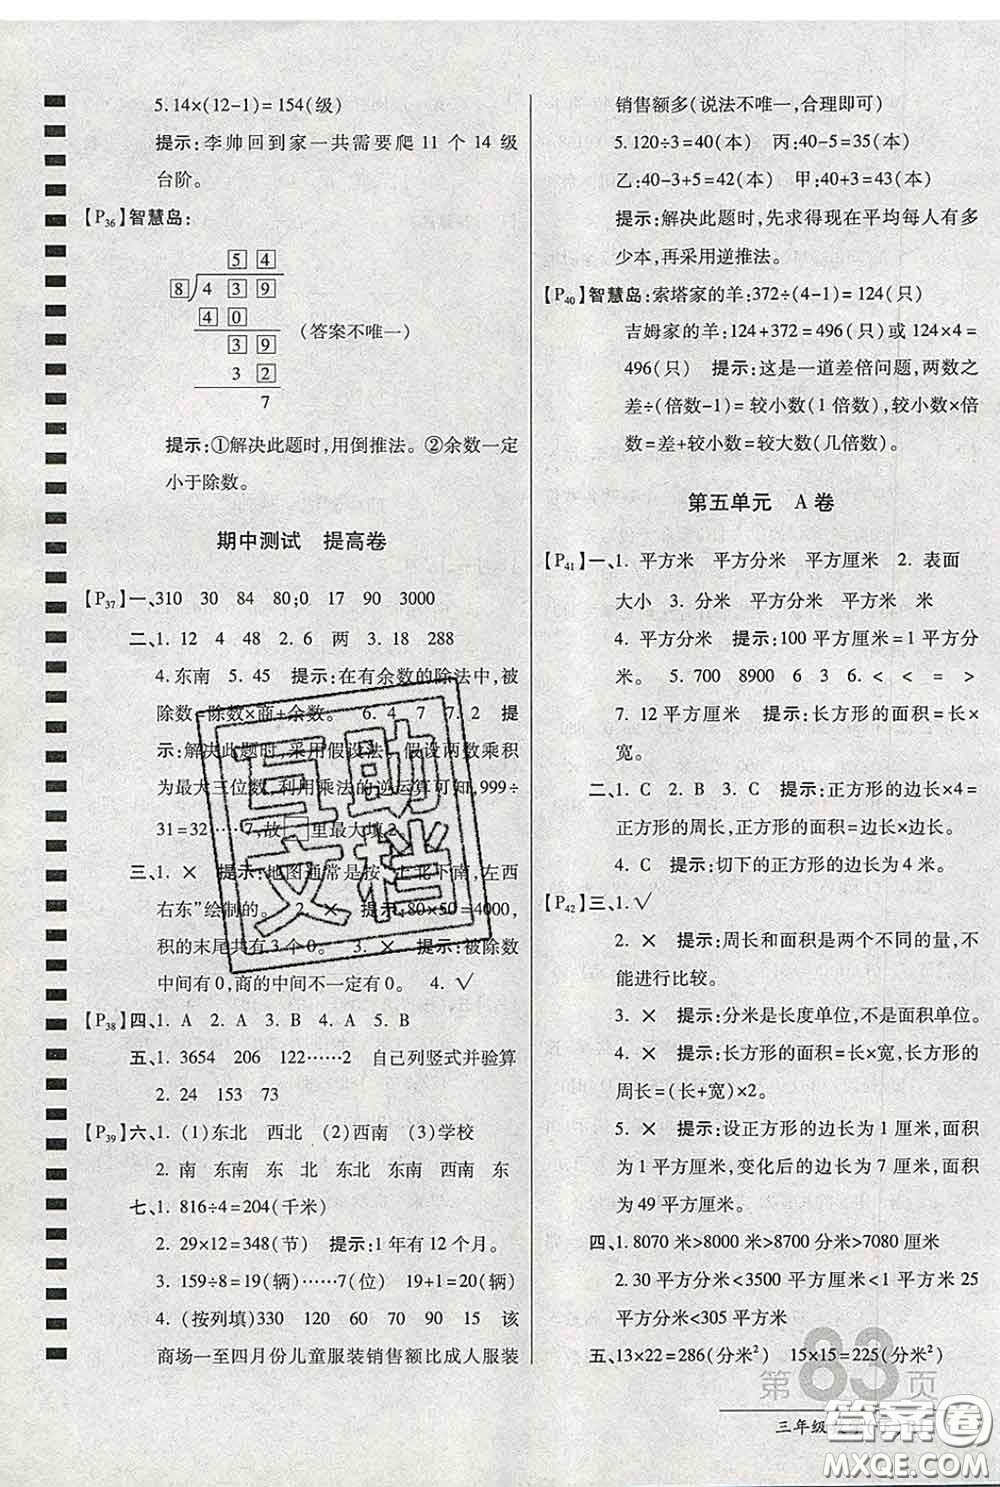 5.14×(12-1)=154(级)
提示:李帅回到家一共需要爬 11 个 14 级
台阶。
【P36】智慧岛:
5 4
8 4 3 9
4 0
3 9
3 2
7
(答案不唯一)
提示:①解决此题时,用倒推法。②余数一定
小于除数。
期中测试 提高卷
【P37】一、310 30 84 80;0 17 90 3000
二、1. 12 4 48 2. 6 两 3. 18 288
4. 东南 5. 45 提示:在有余数的除法中,被
除数=除数×商+余数。 6. 4 7 7. 2 提
示:解决此题时,采用假设法,假设两数乘积
为最大三位数,利用乘法的逆运算可知,999÷
31=32……7,故□里最大填2。
三、1. × 提示:地图通常是按“上北下南,左西
右东”绘制的。 2. × 提示:80×50=4000,
积的末尾共有 3 个 0。 3. × 提示:被除数
中间有 0,商的中间不一定有 0。 4. √
【P38】四、1. A 2. A 3. B 4. A 5. B
五、1. 3654 206 122……2 自己列竖式并验算
2. 24 153 73
【P39】六、1. (1)东北 西北 (2)西南 (3)学校
2. 南 东南 东 北 东北 东南 西南 东
七、1. 816÷4=204(千米)
2. 29×12=348(节) 提示:1 年有 12 个月。
3. 159÷8=19(辆)……7(位) 19+1=20(辆)
4. (按列填)330 120 60 70 90 90 该
商场一至四月份儿童服装销售额比成人服装
销售额多(说法不唯一,合理即可)
5.120÷3=40(本) 丙:40-5=35(本)
乙:40-3+5=42(本) 甲:40+3=43(本)
提示:解决此题时,先求得现在平均每人有多
少本,再采用逆推法。
【P40】智慧岛:索塔家的羊:372÷(4-1)=124(只)
吉姆家的羊:124+372=496(只)或 124×4=
496(只) 提示:这是一道差倍问题,两数之
差÷(倍数-1)=较小数(1 倍数),较小数×倍
数=差+较小数=较大数(几倍数)。
第五单元 A 卷
【P41】一、1. 平方米 平方分米 平方厘米 2. 表面
大小 3. 分米 平方分米 平方米 米
4. 平方分米 提示:100 平方厘米=1 平方分
米。 5. 700 8900 6 3 6. < < = >
7. 12 平方厘米 提示:长方形的面积=长×
宽。
二、1. C 2. B 3. C 提示:正方形的边长×4=
正方形的周长,正方形的面积=边长×边长。
4. C 提示:切下的正方形的边长为 4 米。
【P42】三、1.√
2. × 提示:周长和面积是两个不同的量,不
能进行比较。
3. × 提示:分米是长度单位,不是面积单位。
4. × 提示:长方形的面积=长×宽,长方形的
周长=(长+宽)×2。
5. × 提示:设正方形的边长为 1 厘米,面积
为 1 平方厘米,变化后的边长为 7 厘米,面积
为 49 平方厘米。
四、1. 8070 米>8000 米>8700 平方米>7080 厘米
2.30 平方分米<3500 平方厘米<1 平方米 25
平方分米<305 平方米
五、13×22=286(分米²) 15×15=225(分米²)
第83页
三年级
互助文档
答案圈
MXQE.COM